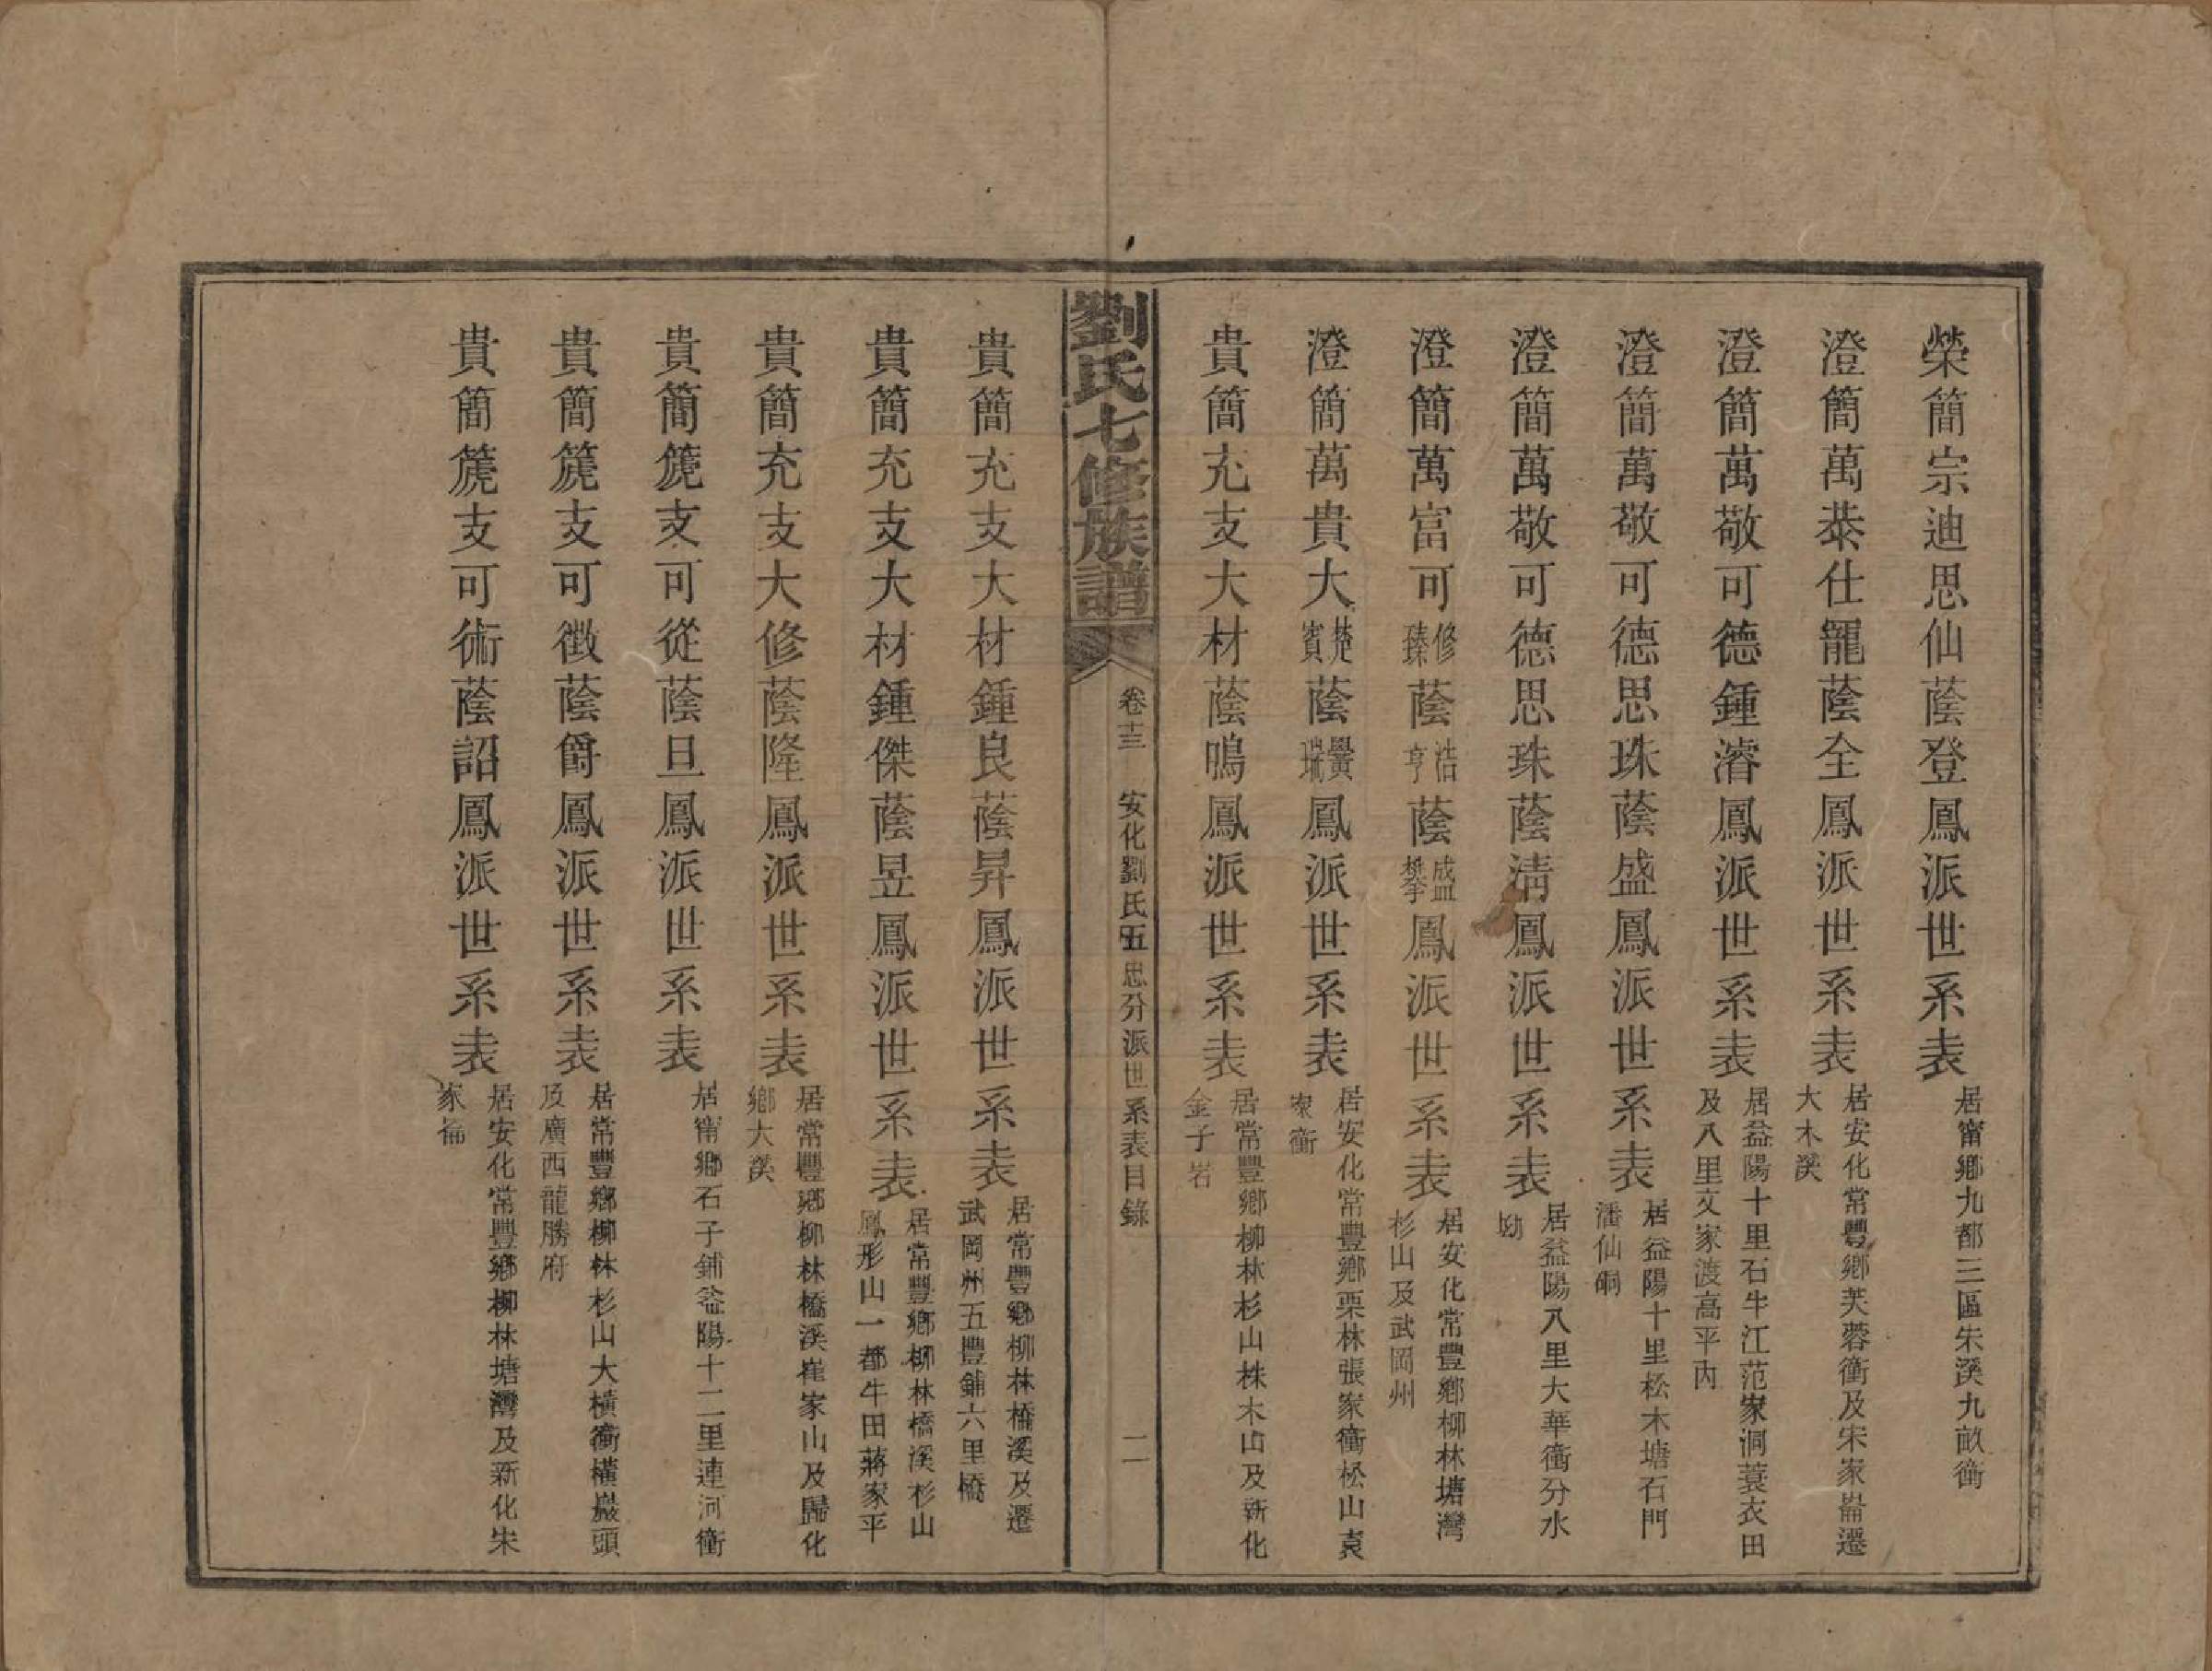 榮簡宗迪思仙蔭登鳳派世系表 居甯鄉九都三區朱溪九畝衝
澄簡萬泰仕寵蔭全鳳派世系表 居安化常豐鄉芙蓉衝及宋家崙遷大木溪
澄簡萬敬可德鍾濬鳳派世系表 居益陽十里石牛江范家洞蓑衣田及八里文家渡高平內
澄簡萬敬可德思珠蔭盛鳳派世系表 居益陽十里松木塘石門潘仙硐
澄簡萬敬可德思珠蔭清鳳派世系表 居益陽八里大華衝分水坳
澄簡萬富可修臻蔭浩亨蔭盛攀鳳派世系表 居安化常豐鄉柳林塘灣杉山及武岡州
澄簡萬貴大楚賓蔭黌瑞鳳派世系表 居安化常豐鄉栗林張家衝松山袁家衝
貴簡充支大材蔭鳴鳳派世系表 居常豐鄉柳林杉山株木山及新化金子岩
劉氏七修族譜 卷十三 安化劉氏五忠分派世系表目錄 二
貴簡充支大材鍾良蔭昇鳳派世系表 居常豐鄉柳林橋溪及遷武岡州五豐鋪六里橋
貴簡充支大材鍾傑蔭昱鳳派世系表 居常豐鄉柳林橋溪杉山鳳形山一都牛田蔣家平
貴簡充支大修蔭隆鳳派世系表 居常豐鄉柳林橋溪崔家山及歸化鄉大溪
貴簡篪支可從蔭旦鳳派世系表 居甯鄉石子鋪益陽十二里連河衝
貴簡篪支可徵蔭爵鳳派世系表 居常豐鄉柳林杉山大橫衝橫巖頭及廣西龍勝府
貴簡篪支可術蔭詔鳳派世系表 居安化常豐鄉柳林塘灣及新化朱家崙